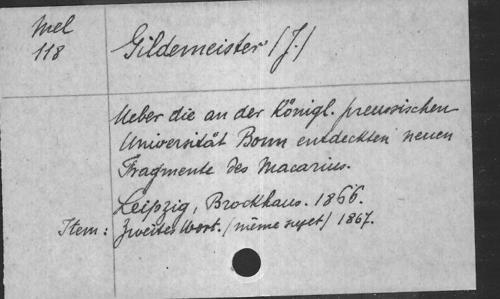 Mel
118
Gildemeister (J.)
Ueber die an der Königl. preussischen
Universität Bonn entdeckten neuen
Fragmente des Macarius.
Leipzig, Brockhaus. 1866.
Item: Zweites Wort. (même sujet) 1867.